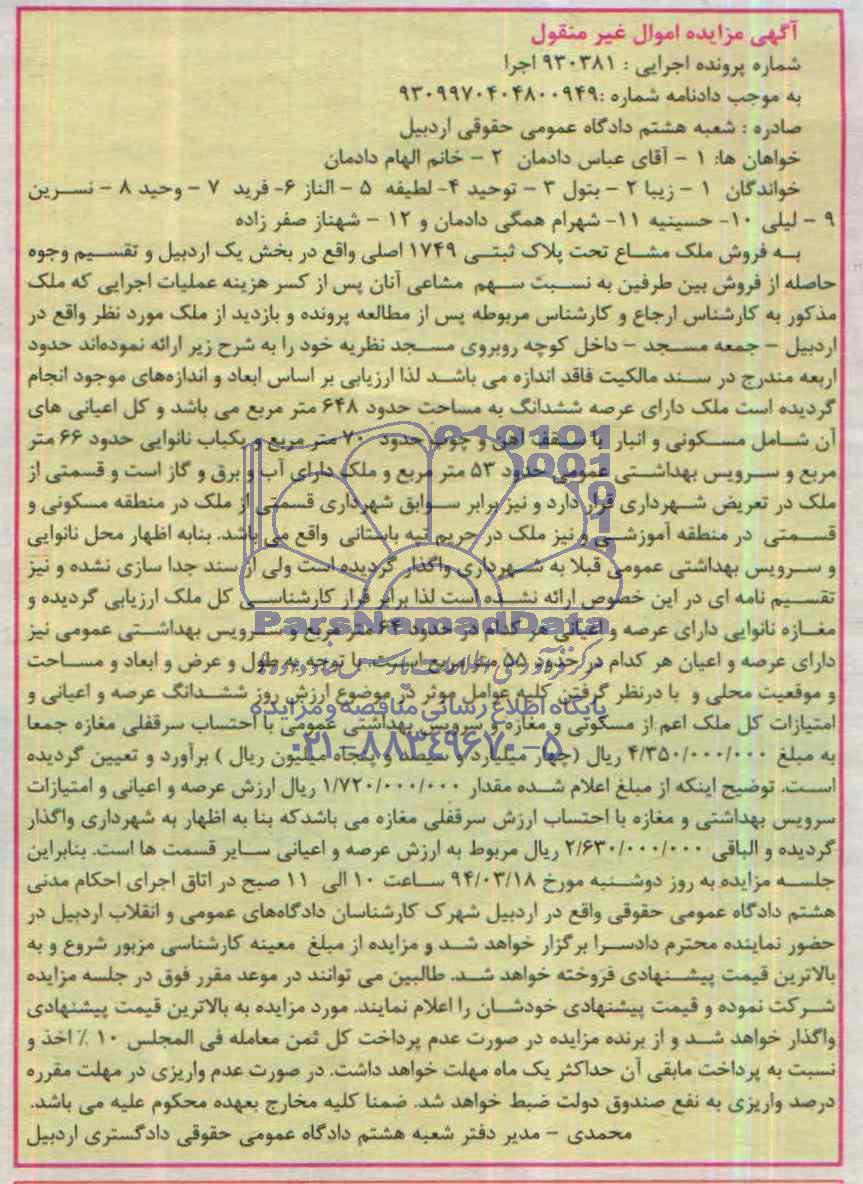 آگهی مزایده اموال غیر منقول
شماره پرونده اجرایی : ۹۳۰۳۸۱ اجرا
به موجب دادنامه شماره :۹۳۰۹۹۷۰۴۰۴۸۰۰۹۴۹
صادره : شعبه هشتم دادگاه عمومی حقوقی اردبیل
خواهان ها: ۱ – آقای عباس دادمان ۲ – خانم الهام دادمان
خواندگان ۱ – زیبا ۲ – بتول ۳ – توحید ۴- لطیفه ۵ – الناز ۶- فرید ۷ – وحید ۸ – نسرین
۹ – لیلی ۱۰- حسینیه ۱۱- شهرام همگی دادمان و ۱۲ – شهناز صفر زاده
به فروش ملک مشاع تحت پلاک ثبتی ۱۷۴۹ اصلی واقع در بخش یک اردبیل و تقسیم وجوه
حاصله از فروش بین طرفین به نسبت سهم مشاعی آنان پس از کسر هزینه عملیات اجرایی که ملک
مذکور به کارشناس ارجاع و کارشناس مربوطه پس از مطالعه پرونده و بازدید از ملک مورد نظر واقع در
اردبیل – جمعه مسجد – داخل کوچه روبروی مسجد نظریه خود را به شرح زیر ارائه نموده‌اند حدود
اربعه مندرج در سند مالکیت فاقد اندازه می باشد لذا ارزیابی بر اساس ابعاد و اندازه‌های موجود انجام
گردیده است ملک دارای عرصه ششدانگ به مساحت حدود ۶۴۸ متر مربع می باشد و کل اعیانی های
آن شامل مسکونی و انبار با سقف آهن و چوب حدود ۷۰ متر مربع و یکباب نانوایی حدود ۶۶ متر
مربع و سرویس بهداشتی عمومی حدود ۵۳ متر مربع و ملک دارای آب و برق و گاز است و قسمتی از
ملک در تعریض شهرداری قرار دارد و نیز برابر سوابق شهرداری قسمتی از ملک در منطقه مسکونی و
قسمتی در منطقه آموزشی و نیز ملک در حریم تپه باستانی واقع می باشد. بنابه اظهار محل نانوایی
و سرویس بهداشتی عمومی قبلا به شهرداری واگذار گردیده است ولی از سند جدا سازی نشده و نیز
تقسیم نامه ای در این خصوص ارائه نشده است لذا برابر قرار کارشناسی کل ملک ارزیابی گردیده و
مغازه نانوایی دارای عرصه و اعیانی هر کدام در حدود ۶۴ متر مربع و سرویس بهداشتی عمومی نیز
دارای عرصه و اعیان هر کدام در حدود ۵۵ متر مربع است. با توجه به طول و عرض و ابعاد و مساحت
و موقعیت محلی و با درنظر گرفتن کلیه عوامل موثر در موضوع ارزش روز ششدانگ عرصه و اعیانی و
امتیازات کل ملک اعم از مسکونی و مغازه و سرویس بهداشتی عمومی با احتساب سرقفلی مغازه جمعا
به مبلغ ۴/۳۵۰/۰۰۰/۰۰۰ ریال (چهار میلیارد و سیصد و پنجاه میلیون ریال ) برآورد و تعیین گردیده
است. توضیح اینکه از مبلغ اعلام شده مقدار ۱/۷۲۰/۰۰۰/۰۰۰ ریال ارزش عرصه و اعیانی و امتیازات
سرویس بهداشتی و مغازه با احتساب ارزش سرقفلی مغازه می باشدکه بنا به اظهار به شهرداری واگذار
گردیده و الباقی ۲/۶۳۰/۰۰۰/۰۰۰ ریال مربوط به ارزش عرصه و اعیانی سایر قسمت ها است. بنابراین
جلسه مزایده به روز دوشنبه مورخ ۹۴/۰۳/۱۸ ساعت ۱۰ الی ۱۱ صبح در اتاق اجرای احکام مدنی
هشتم دادگاه عمومی حقوقی واقع در اردبیل شهرک کارشناسان دادگاه‌های عمومی و انقلاب اردبیل در
حضور نماینده محترم دادسرا برگزار خواهد شد و مزایده از مبلغ معینه کارشناسی مزبور شروع و به
بالاترین قیمت پیشنهادی فروخته خواهد شد. طالبین می توانند در موعد مقرر فوق در جلسه مزایده
شرکت نموده و قیمت پیشنهادی خودشان را اعلام نمایند. مورد مزایده به بالاترین قیمت پیشنهادی
واگذار خواهد شد و از برنده مزایده در صورت عدم پرداخت کل ثمن معامله فی المجلس ۱۰ ٪ اخذ و
نسبت به پرداخت مابقی آن حداکثر یک ماه مهلت خواهد داشت. در صورت عدم واریزی در مهلت مقرره
درصد واریزی به نفع صندوق دولت ضبط خواهد شد. ضمنا کلیه مخارج بعهده محکوم علیه می باشد.
محمدی – مدیر دفتر شعبه هشتم دادگاه عمومی حقوقی دادگستری اردبیل
ParsNamadData
پایگاه اطلاع رسانی مناقصه و مزایده
۰۲۱-۸۸۳۴۹۶۷۰-۵